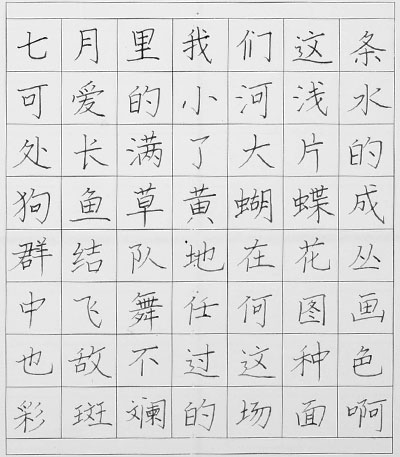 七月里我们这条
可爱的小河浅水
处长满了大片的
狗鱼草黄蝴蝶成
群结队地在花丛
中飞舞任何图画
也敌不过这种色
彩斑斓的场面啊